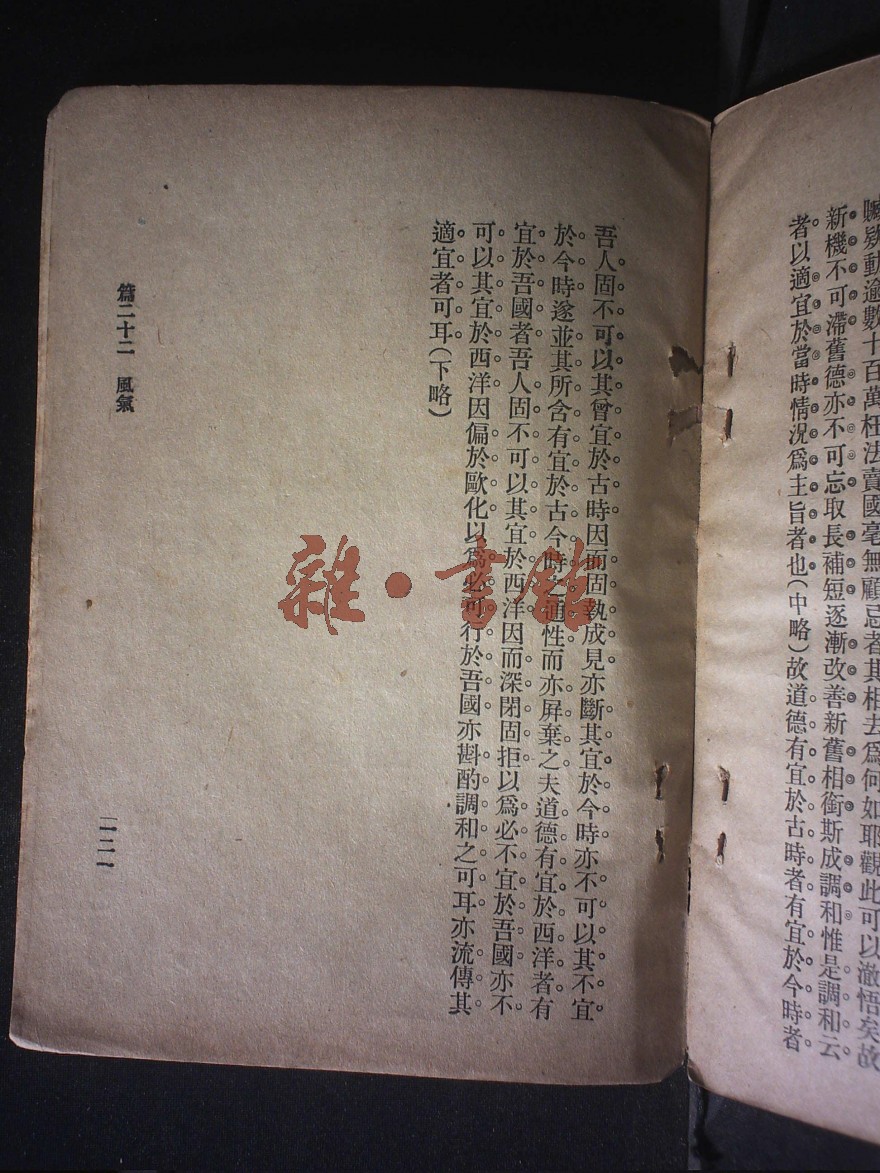 贓疑動逾數十百萬枉法賣國毫無顧忌者其相去爲何如耶觀此可以澈悟矣故
新機不可滯舊德亦不可忘取長補短逐漸改善新舊相銜斯成調和惟是調和云
者以適宜於當時情況爲主旨者也(中略)故道德有宜於古時者有宜於今時者
吾人固不可以其曾宜於古時因而固執成見亦斷其宜於今時亦不可以其不宜
於今時遂並其所含有宜於古今時之通性而亦屏棄之夫道德有宜於西洋者有
宜於吾國者吾人固不可以其宜於西洋因而深閉固拒以爲必不宜於吾國亦不
可以其宜於西洋因偏於歐化以爲必可行於吾國亦斟酌調和之可耳亦流傳其
適宜者可耳(下略)
篇二十二 風氣
一二一
雜·書館